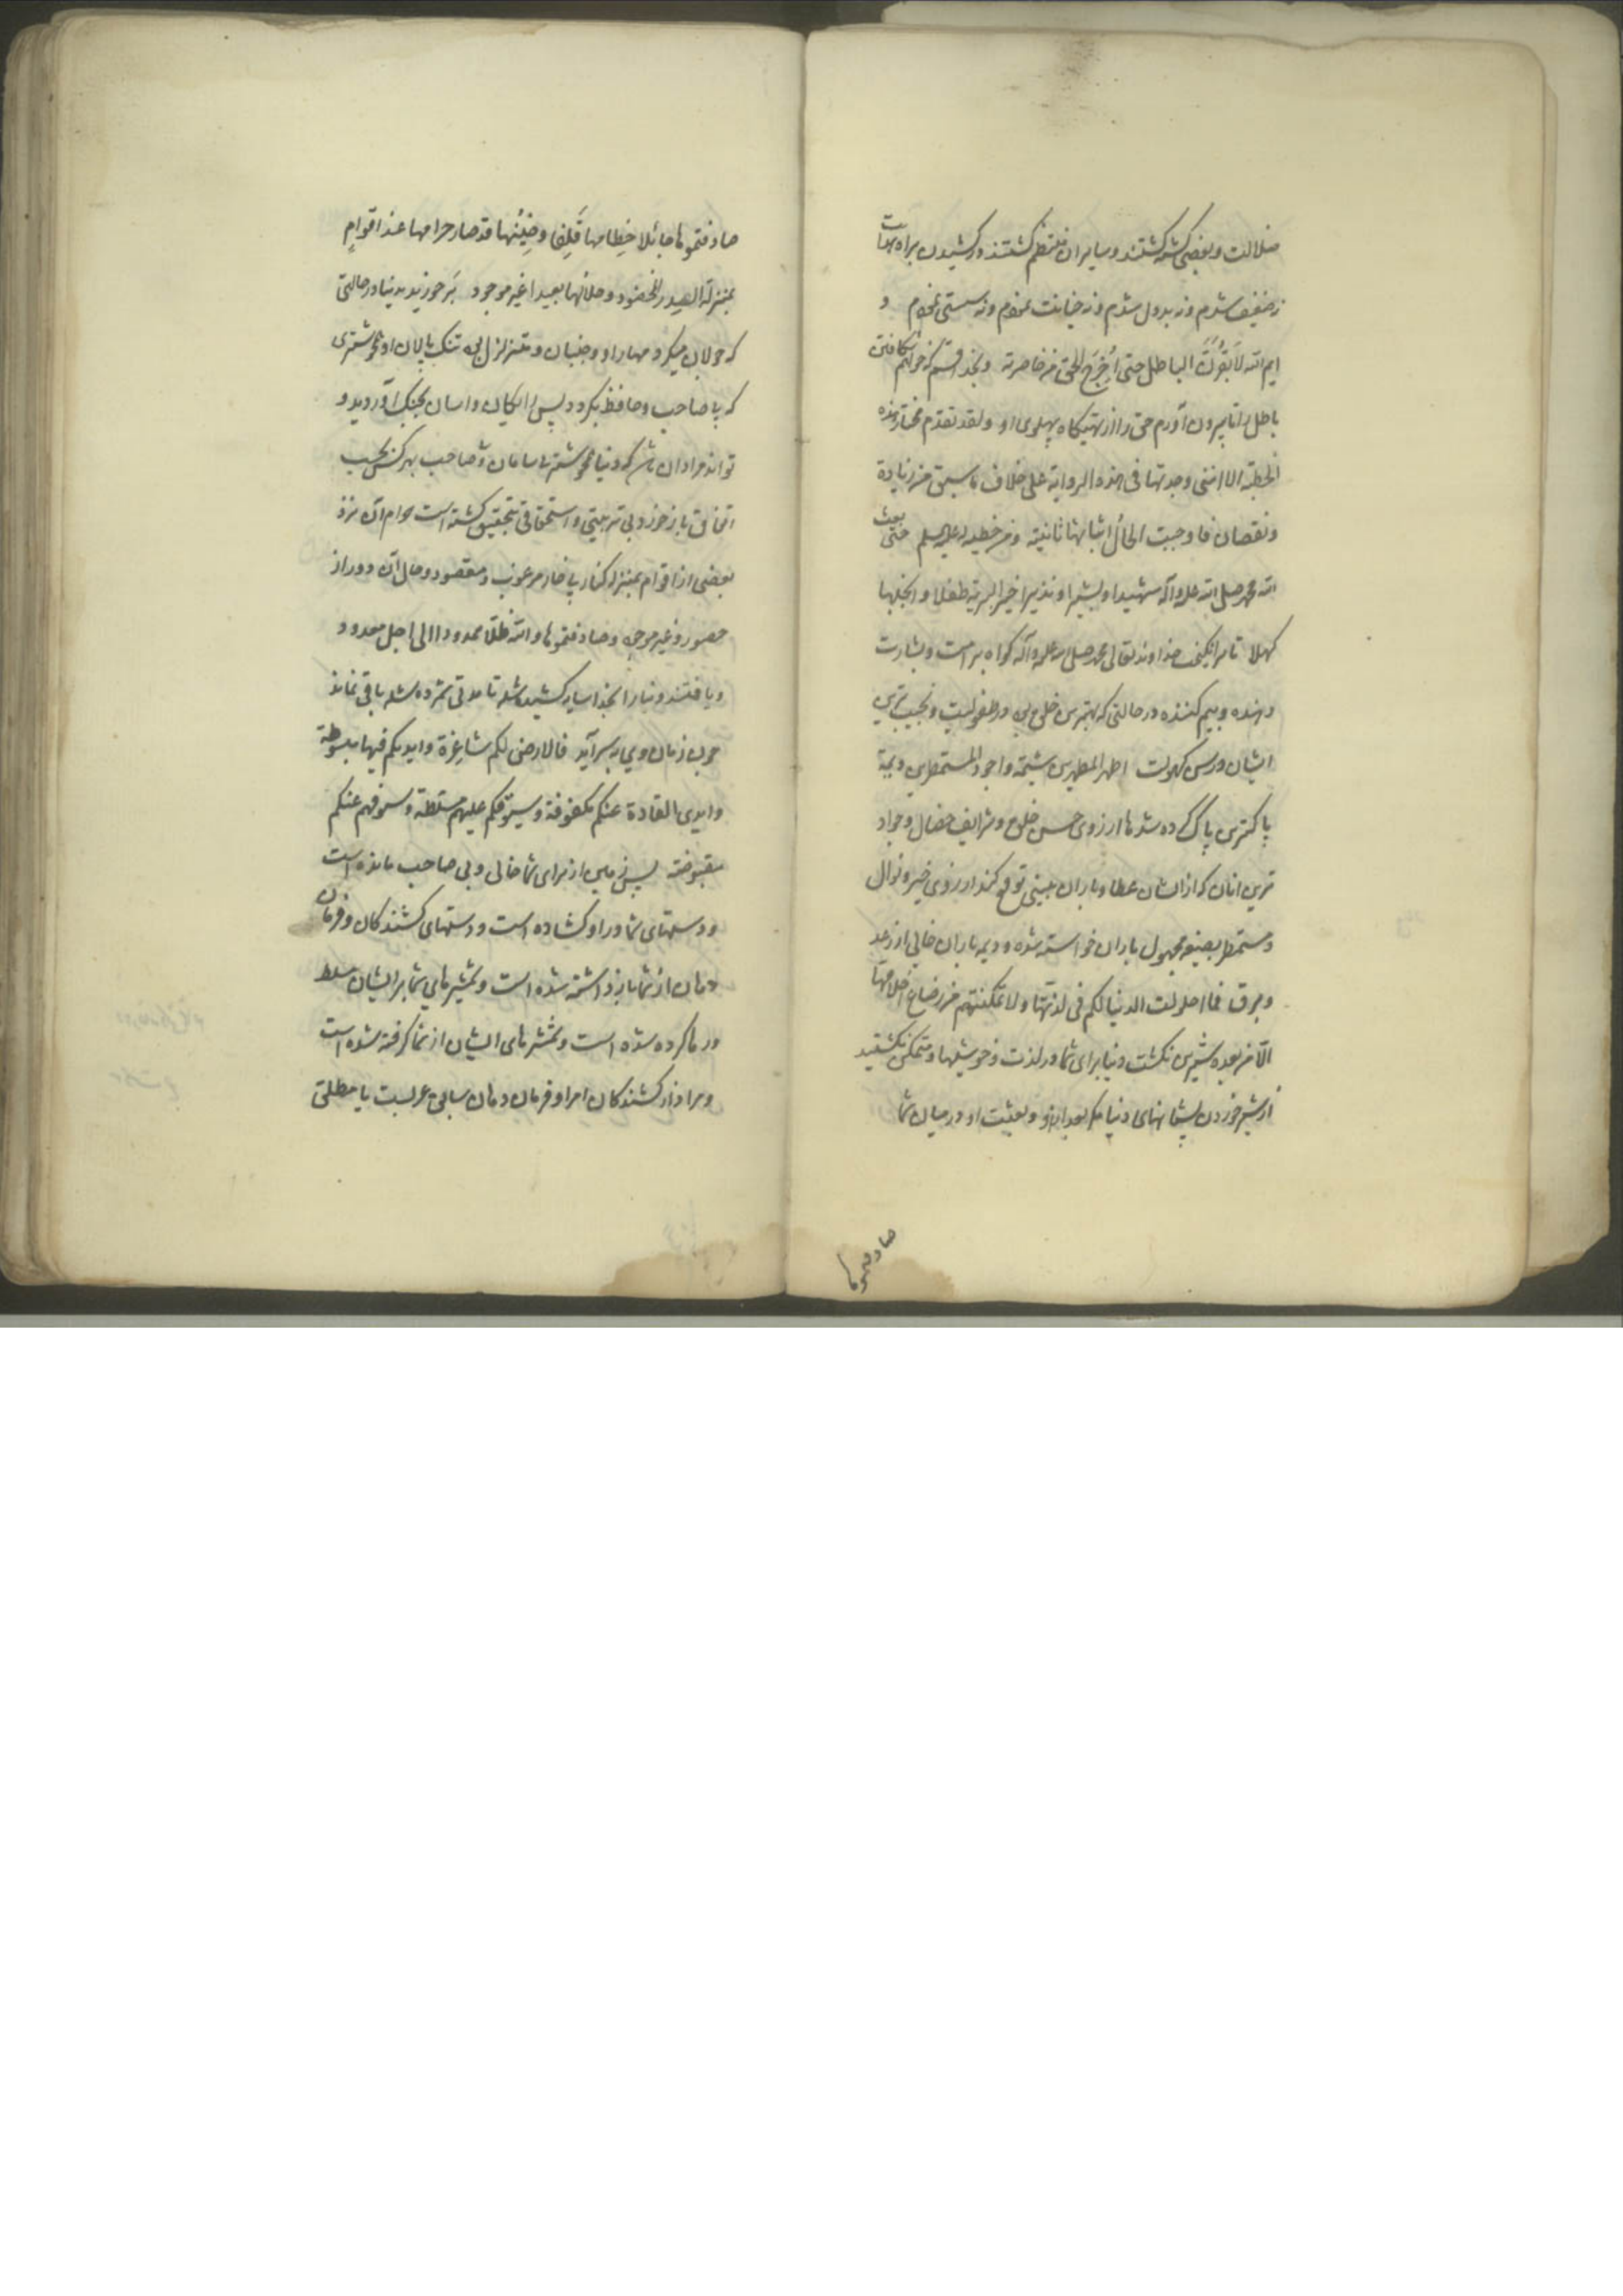 ضلالت و بعضی کشته کشتند و سایران منتظم کشتند در کشیدن براه هدایت
نه ضعیف شدم و نه بددل شدم و نه خیانت نمودم و نه سستی نمودم و
ایم الله لابقرن الباطل حتی اُخرج الحق من خاصرته و بخدا قسم که خواهم شکافتن
باطل را تا بیرون آورم حق را از تهیکاه پهلوی او و لقد تقدم مختار هذه
الخطبة الا اننی وجدتها فی هذه الروایة علی خلاف ما سبق من زیادة
و نقصان فاوجبت الحال اثباتها ثانیة و من خطبة له علیه السلم حتی بعث
الله محمدا صلی الله علیه و آله شهیدا و بشیرا و نذیرا خیر البریة طفلا و انجبها
کهلا تا برانکیخت خداوند تعالی محمد صلی الله علیه و آله کواه بر امت و بشارت
دهنده و بیم کننده در حالتی که بهترین خلق بود در طفولیت و نجیب ترین
ایشان در سن کهولت اطهر المطهرین شیمة و اجود المستمطرین دیمة
پاکترین پاک کرده شدها از روی حسن خلق و شرایف خصال و جواد
ترین انان که از ایشان عطا و باران بینی توقع کنند از روی خیر و نوال
و مستمطر بصیغه مجهول باران خواسته شده و دیمه باران خالی از رعد
و برق فما احلولت الدنیا لکم فی لذتها و لا تمکنتم من رضاع اخلافها
الا من بعده شیرین نکشت دنیا برای شما در لذت و خوشیها و متمکن نکشتید
از شیر خوردن پستانهای دنیا مکر بعد از او و بعثت او در میان شما
صادفتموها
صادفتموها جائلا خطامها قلقا وضینها قد صار حرامها عند اقوام
بمنزلة السدر المخضود و حلالها بعیدا غیر موجود بر خوردید بدنیا در حالتی
که جولان میکرد مهار او و جنبان و متزلزل بود تنک پالان او همچو شتری
که بی صاحب و حافظ بکردد پس رایکان و اسان بچنک آوردید و
تواند مراد ان باشد که دنیا همچو شتر بی سامان و صاحب بهر کس بحسب
اتفاق باز خورد بی تربیتی و استحقاقی بتحقیق کشته است حرام آن نزد
بعضی از اقوام بمنزله کنار بی خار مرغوب و مقصود و حلال آن دور از
حضور و غیر موجود و صادفتموها و الله ظلا ممدودا الی اجل معدود
و یافتند دنیا را بخدا سایه کشیده شده تا مدتی شمرده شده باقی نماند
چون زمان وی بسر آید فالارض لکم شاغرة و ایدیکم فیها مبسوطة
و ایدی القادة عنکم مکفوفة و سیوفکم علیهم مسلطة و سیوفهم عنکم
مقبوضة پس زمین از برای شما خالی و بی صاحب مانده است
و دستهای شما در او کشاده است و دستهای کشندکان و فرمان
دهان از شما باز داشته شده است و شمشیرهای شما بر ایشان مسلط
و رها کرده شده است و شمشیرهای ایشان از شما کرفته شده است
و مراد از کشندکان امرا و فرمان دهان سابق عربست یا مطلق